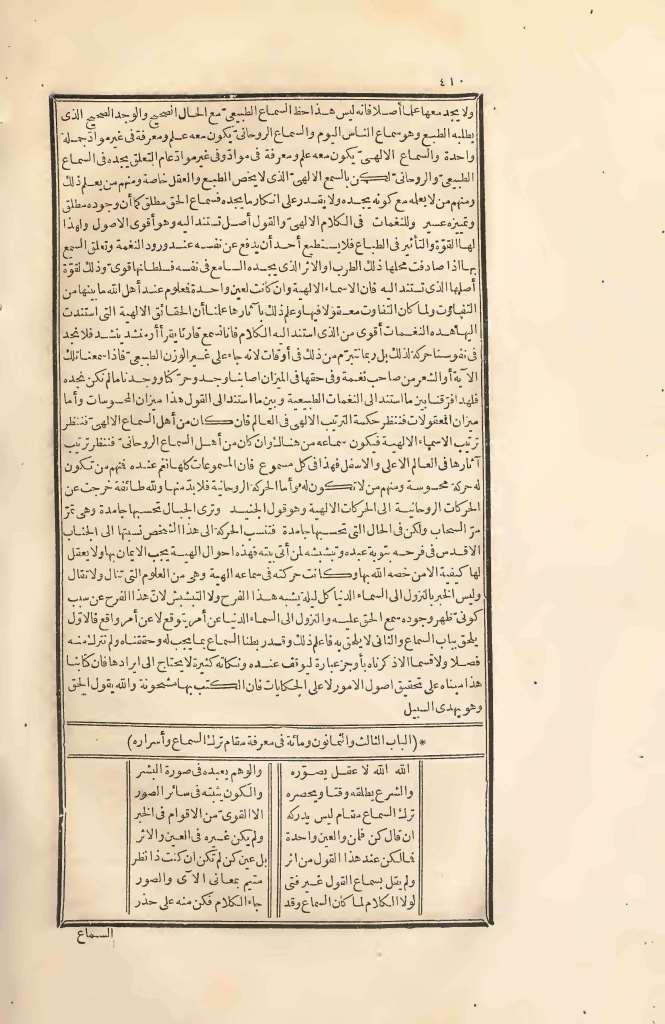 ٤١٠
ولا يجد معها علما أصلا فانه ليس هذا حظ السماع الطبيعىّ مع الحال الصحيح والوجد الصحيح الذى
يطلبه الطبع وهو سماع الناس اليوم والسماع الروحانىّ يكون معه علم ومعرفة فى غير موادّ جملة
واحدة والسماع الالهىّ يكون معه علم ومعرفة فى موادّ وفى غير موادّ عام التعلق يجده فى السماع
الطبيعىّ والروحانىّ لكن بالسمع الالهىّ الذى لا يخص الطبع والعقل خاصة ومنهم من يعلم ذلك
ومنهم من لا يعلمه مع كونه يجده ولا يقدر على انكار ما يجده فسماع الحق مطلق كما أن وجوده مطلق
وتمييزه عسير وللنغمات فى الكلام الالهىّ والقول أصل تستند اليه وهو أقوى الاصول ولهذا
لها القوّة والتأثير فى الطباع فلا يستطيع أحد أن يدفع عن نفسه عند ورود النغمة وتعلق السمع
بها اذا صادفت محلها ذلك الطرب والاثر الذى يجده السامع فى نفسه فسلطانها قوىّ وذلك لقوّة
أصلها الذى تستند اليه فان الاسماء الالهية وان كانت لعين واحدة فمعلوم عند أهل الله ما بينها من
التفاوت ولما كان التفاوت معقولا فيها وعلم ذلك بآثارها علمنا أن الحقائق الالهية التى استندت
اليها هذه النغمات أقوى من الذى استند اليه الكلام فانا نسمع قارئا يقرأ أو منشد ينشد فلا نجد
فى نفوسنا حركة لذلك بل ربما نتبرّم من ذلك فى أوقات لانه جاء على غير الوزن الطبيعىّ فاذا سمعنا تلك
الآية أو الشعر من صاحب نغمة وفى حقها فى الميزان اصابنا وجد وحرّكنا ووجدنا ما لم نكن نجده
فلهذا فرّقنا بين ما استند الى النغمات الطبيعية وبين ما استند الى القول هذا ميزان المحسوسات وأما
ميزان المعقولات فننظر حكمة الترتيب الالهى فى العالم فان كان من أهل السماع الالهىّ فننظر
ترتيب الاسماء الالهية فيكون سماعه من هنالك وان كان من أهل السماع الروحانىّ فننظر ترتيب
آثارها فى العالم الاعلى والاسفل فهذا فى كل مسموع فان المسموعات كلها نغم عنده فمنهم من تكون
له حركة محسوسة ومنهم من لا تكون له وأما الحركة الروحانية فلا بدّ منها ولله طائفة خرجت عن
الحركات الروحانية الى الحركات الالهية وهو قول الجنيد وترى الجبال تحسبها جامدة وهى تمرّ
مرّ السحاب ولكن فى الحال التى تحسبها جامدة فتنسب الحركة الى هذا الشخص نسبتها الى الجناب
الاقدس فى فرحه بتوبة عبده وتبشبشه لمن أتى بيته فهذه احوال الهية يجب الايمان بها ولا يعقل
لها كيفية الا من خصه الله بها وكانت حركته فى سماعه الهية وهى من العلوم التى تنال ولا تقال
وليس الخبر بالنزول الى السماء الدنيا كل ليلة يشبه هذا الفرح ولا التبشبش لانّ هذا الفرح عن سبب
كونىّ تظهر وجوده سمع الحق عليه والنزول الى السماء الدنيا عن أمر يتوقع لا عن أمر واقع فالاوّل
يلحق بباب السماع والثانى لا يلحق به فاعلم ذلك وقد ربطنا السماع بما يجب له وحققناه ولم نترك منه
فصلا ولا قسما الا ذكرناه بأوجز عبارة ليوقف عنده ونكاته كثيرة لا يحتاج الى ايرادها فان كتابنا
هذا مبناه على تحقيق اصول الامور لا على الحكايات فان الكتب بها مشحونة والله يقول الحق
وهو يهدى السبيل
* (الباب الثالث والثمانون ومائة فى معرفة مقام ترك السماع وأسراره)
الله الله لا عقل يصوّره والوهم يعبده فى صورة البشر
والشرع يطلقه وقتا ويحصره والكون يثبته فى سائر الصور
ترك السماع مقام ليس يدركه الا القوىّ من الاقوام فى الخبر
ان قال كن فلمن والعين واحدة ولم يكن غيره فى العين والاثر
فالكن عند هذا القول من اثر بل عين كن لم تكن ان كنت ذا نظر
ولم يقل بسماع القول غير فتى متيم بمعانى الآى والصور
لولا الكلام لما كان السماع وقد جاء الكلام فكن منه على حذر
السماع